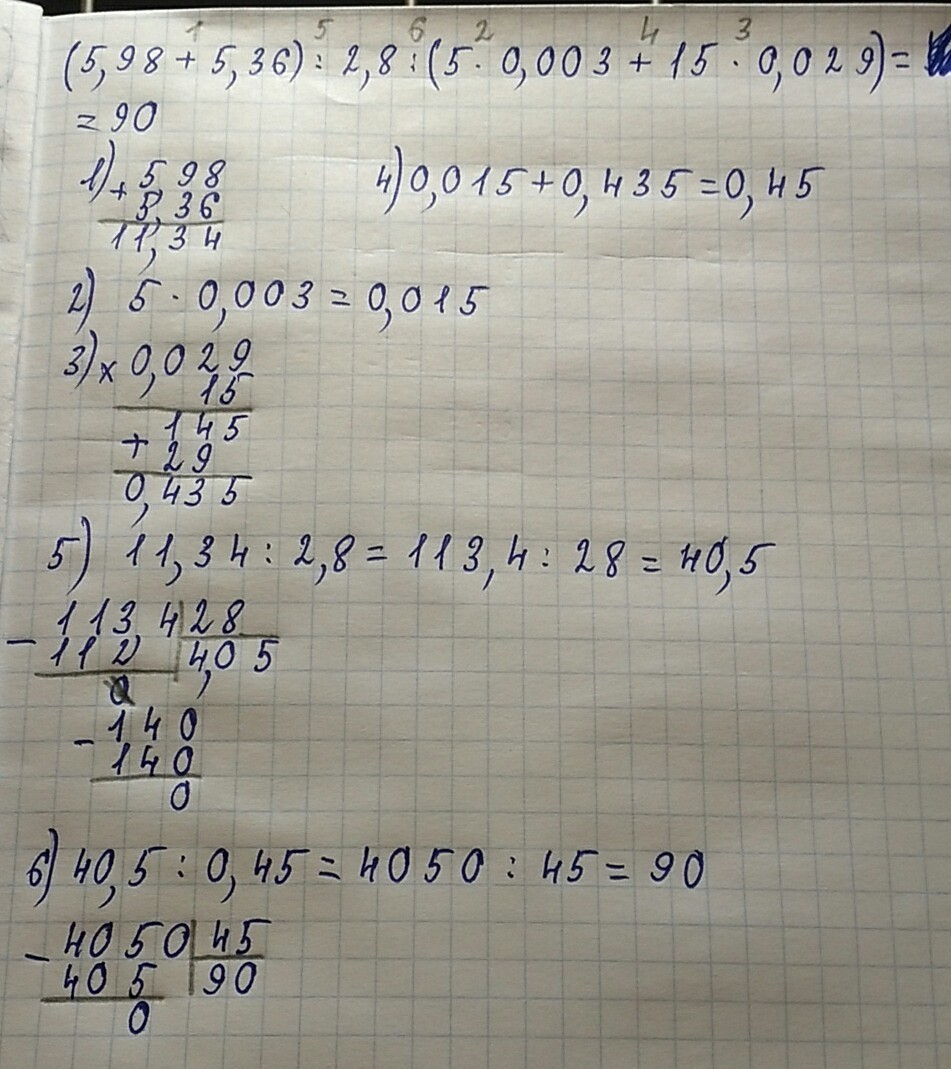 1 5 6 2 4 3
(5,98 + 5,36) : 2,8 : (5 · 0,003 + 15 · 0,029) =
= 90
1) + 5,98
5,36
11,34
4) 0,015 + 0,435 = 0,45
2) 5 · 0,003 = 0,015
3) x 0,029
15
+ 145
29
0,435
5) 11,34 : 2,8 = 113,4 : 28 = 40,5
- 113,4 28
112 4,05
0
- 140
140
0
6) 40,5 : 0,45 = 4050 : 45 = 90
- 4050 45
405 90
0